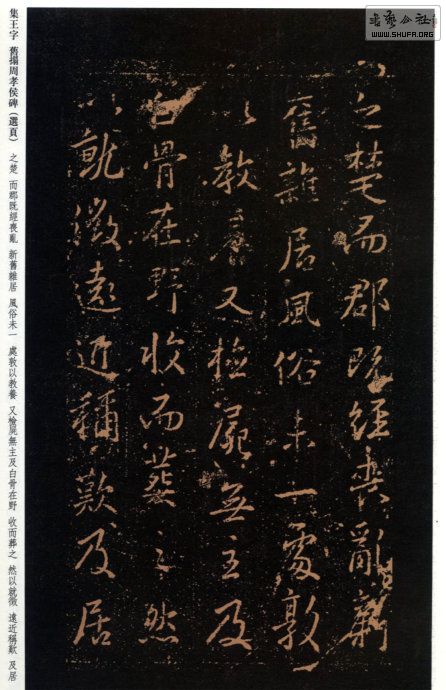 書藝公社
WWW.SHUFA.ORG
之楚而郡既經喪亂新
舊雜居風俗未一處敦
以教養又檢屍無主及
白骨在野收而葬之然
以就徵遠近稱歎及居
集王字 舊搨周孝侯碑（選頁） 之楚 而郡既經喪亂 新舊雜居 風俗未一 處敦以教養 又檢屍無主及白骨在野 收而葬之 然以就徵 遠近稱歎 及居